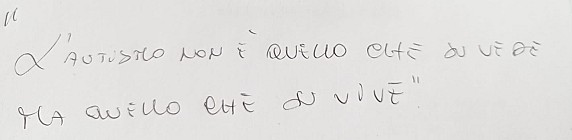 "
L'AUTISMO NON È QUELLO CHE SI VEDE
MA QUELLO CHE SI VIVE"